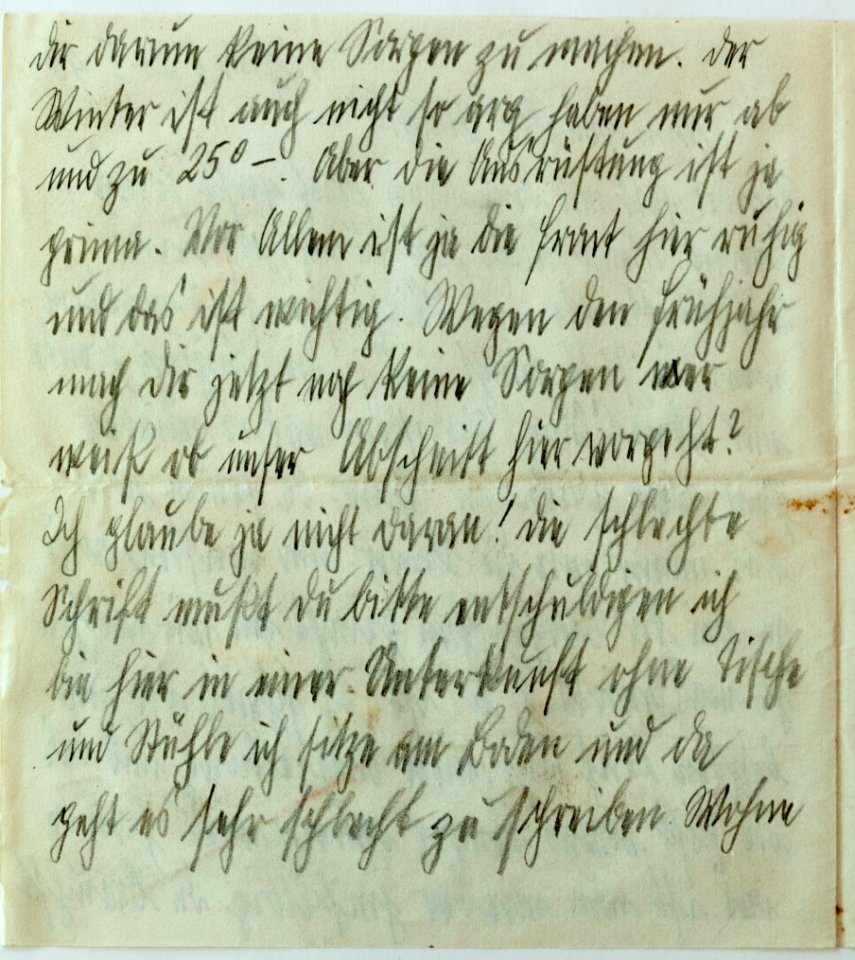 dir darum keine Sorgen zu machen. Der
Winter ist auch nicht so arg haben nur ab
und zu 25° –. Aber die Ausrüstung ist ja
prima. Vor Allem ist ja die Front hier ruhig
und das ist wichtig. Wegen den Frühjahr
mach dir jetzt noch keine Sorgen wer
weiß ob unser Abschnitt hier vorgeht?
Ich glaube ja nicht daran! Die schlechte
Schrift mußt du bitte entschuldigen ich
bin hier in einer Unterkunft ohne Tische
und Stühle ich sitze am Boden und da
geht es sehr schlecht zu schreiben. Wohne